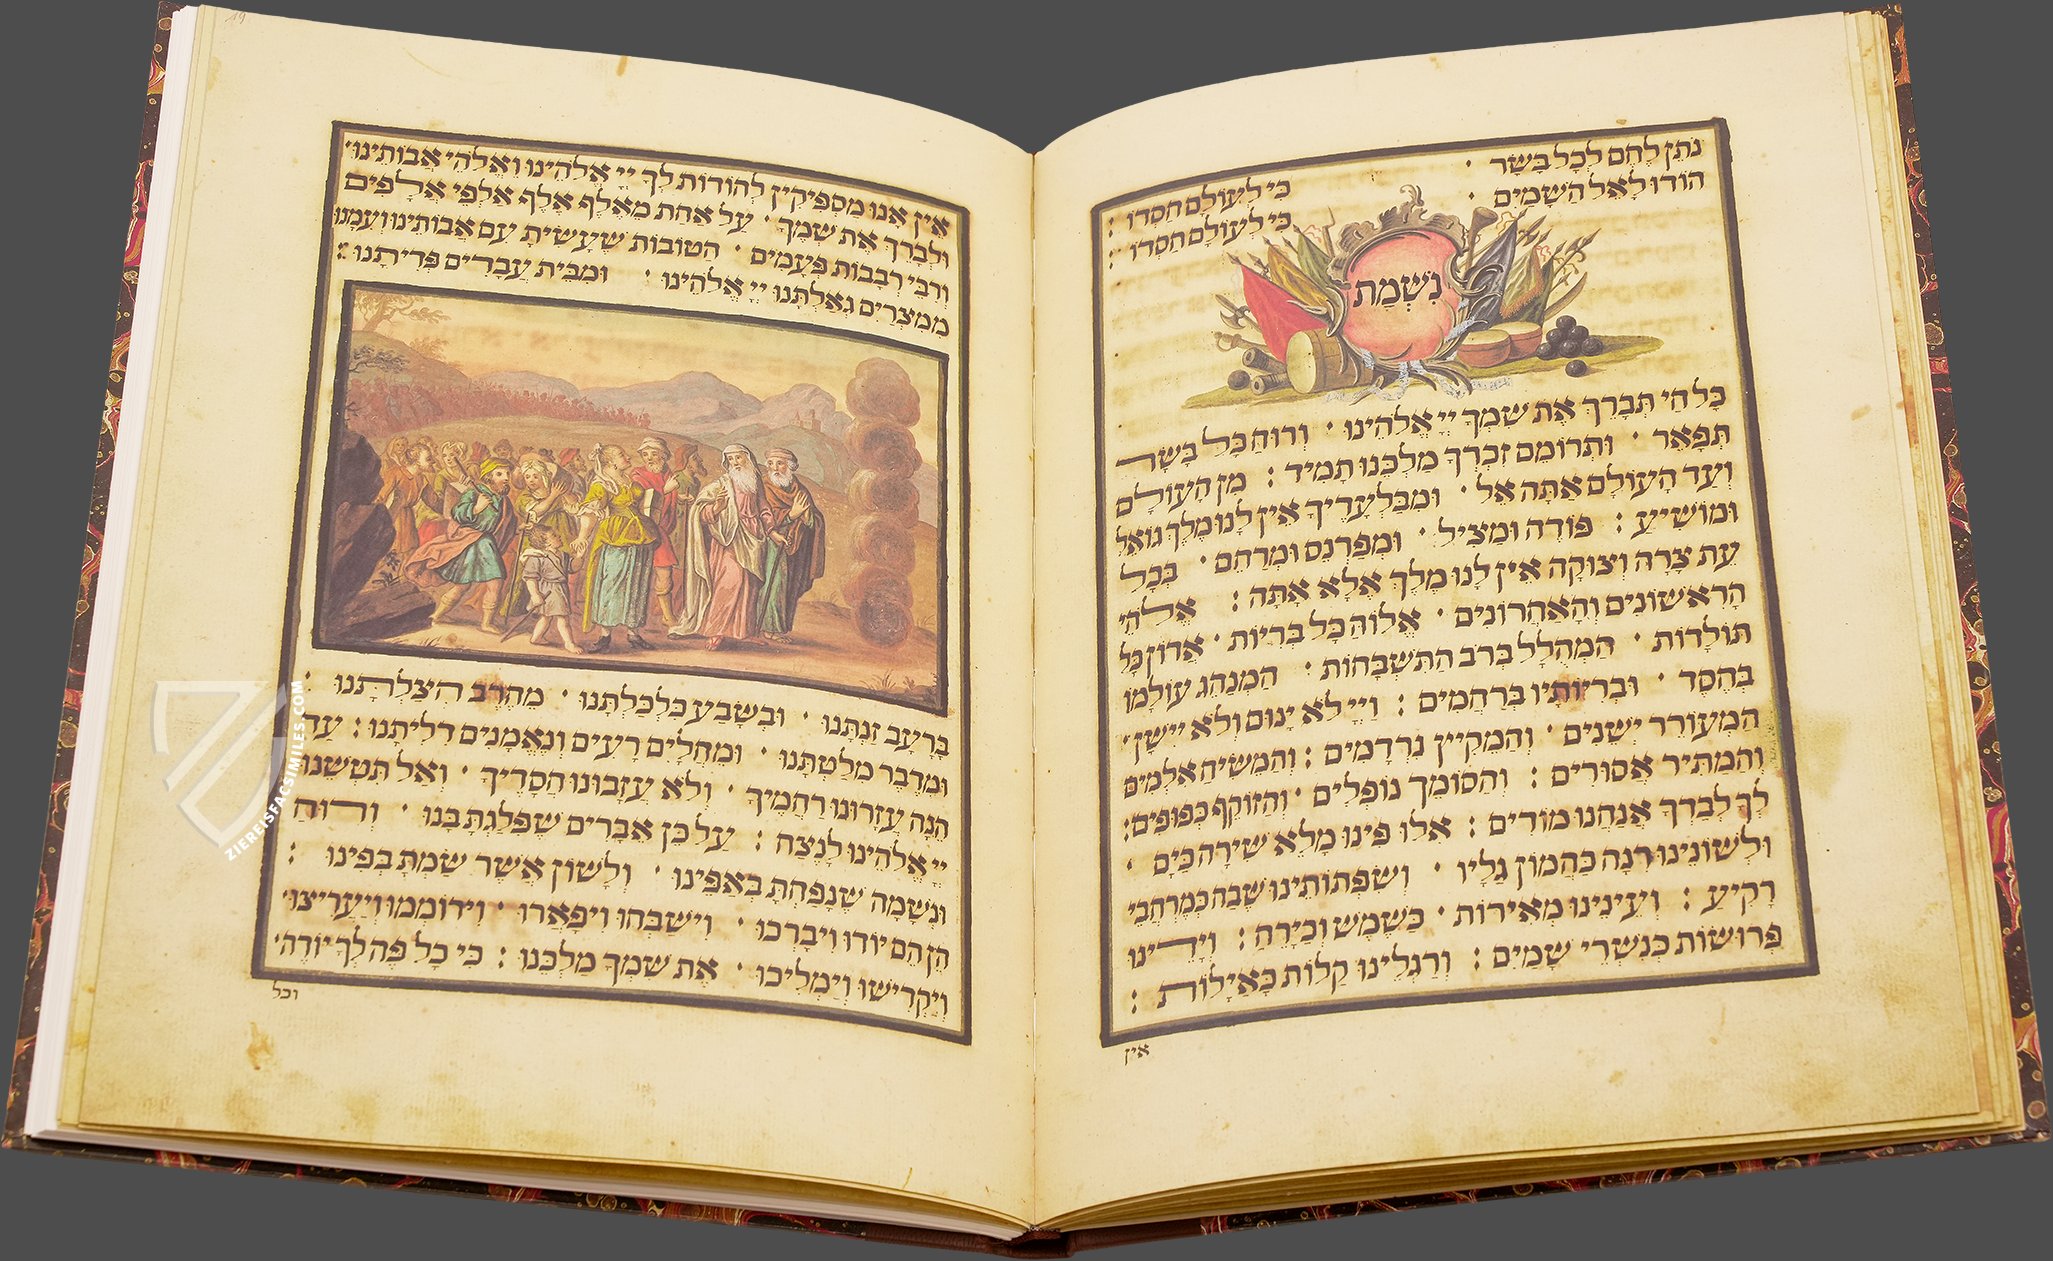 נֹתֵן לֶחֶם לְכָל בָּשָׂר · כִּי לְעוֹלָם חַסְדּוֹ :
הוֹדוּ לְאֵל הַשָּׁמַיִם · כִּי לְעוֹלָם חַסְדּוֹ :
נִשְׁמַת
כָּל חַי תְּבָרֵךְ אֶת שִׁמְךָ יְיָ אֱלֹהֵינוּ · וְרוּחַ כָּל בָּשָׂר
תְּפָאֵר · וּתְרוֹמֵם זִכְרְךָ מַלְכֵּנוּ תָּמִיד : מִן הָעוֹלָם
וְעַד הָעוֹלָם אַתָּה אֵל · וּמִבַּלְעָדֶיךָ אֵין לָנוּ מֶלֶךְ גּוֹאֵל
וּמוֹשִׁיעַ : פּוֹדֶה וּמַצִּיל · וּמְפַרְנֵס וּמְרַחֵם · בְּכָל
עֵת צָרָה וְצוּקָה אֵין לָנוּ מֶלֶךְ אֶלָּא אָתָּה : אֱלֹהֵי
הָרִאשׁוֹנִים וְהָאַחֲרוֹנִים · אֱלוֹהַּ כָּל בְּרִיּוֹת · אֲדוֹן כָּל
תּוֹלָדוֹת · הַמְהֻלָּל בְּרֹב הַתִּשְׁבָּחוֹת · הַמְנַהֵג עוֹלָמוֹ
בְּחֶסֶד · וּבְרִיּוֹתָיו בְּרַחֲמִים : וַיְיָ לֹא יָנוּם וְלֹא יִישָׁן ·
הַמְעוֹרֵר יְשֵׁנִים · וְהַמֵּקִיץ נִרְדָּמִים : וְהַמֵּשִׂיחַ אִלְּמִים
וְהַמַּתִּיר אֲסוּרִים : וְהַסּוֹמֵךְ נוֹפְלִים · וְהַזּוֹקֵף כְּפוּפִים :
לְךָ לְבַדְּךָ אֲנַחְנוּ מוֹדִים : אִלּוּ פִינוּ מָלֵא שִׁירָה כַּיָּם ·
וּלְשׁוֹנֵינוּ רִנָּה כַּהֲמוֹן גַּלָּיו · וְשִׂפְתוֹתֵינוּ שֶׁבַח כְּמֶרְחֲבֵי
רָקִיעַ : וְעֵינֵינוּ מְאִירוֹת · כַּשֶּׁמֶשׁ וְכַיָּרֵחַ : וְיָדֵינוּ
פְרוּשׂוֹת כְּנִשְׁרֵי שָׁמַיִם : וְרַגְלֵינוּ קַלּוֹת כָּאַיָּלוֹת :
אין
19
אֵין אָנוּ מַסְפִּיקִין לְהוֹדוֹת לְךָ יְיָ אֱלֹהֵינוּ וֵאלֹהֵי אֲבוֹתֵינוּ ·
וּלְבָרֵךְ אֶת שְׁמֶךָ · עַל אַחַת מֵאֶלֶף אֶלֶף אַלְפֵי אֲלָפִים
וְרִבֵּי רְבָבוֹת פְּעָמִים · הַטּוֹבוֹת שֶׁעָשִׂיתָ עִם אֲבוֹתֵינוּ וְעִמָּנוּ
מִמִּצְרַיִם גְּאַלְתָּנוּ יְיָ אֱלֹהֵינוּ · וּמִבֵּית עֲבָדִים פְּדִיתָנוּ :
בְּרָעָב זַנְתָּנוּ · וּבְשָׂבָע כִּלְכַּלְתָּנוּ · מֵחֶרֶב הִצַּלְתָּנוּ :
וּמִדֶּבֶר מִלַּטְתָּנוּ · וּמֵחֳלָיִם רָעִים וְנֶאֱמָנִים דִּלִּיתָנוּ : עַד
הֵנָּה עֲזָרוּנוּ רַחֲמֶיךָ · וְלֹא עֲזָבוּנוּ חֲסָדֶיךָ · וְאַל תִּטְּשֵׁנוּ
יְיָ אֱלֹהֵינוּ לָנֶצַח : עַל כֵּן אֵבָרִים שֶׁפִּלַּגְתָּ בָּנוּ · וְרוּחַ
וּנְשָׁמָה שֶׁנָּפַחְתָּ בְּאַפֵּינוּ · וְלָשׁוֹן אֲשֶׁר שַׂמְתָּ בְּפִינוּ :
הֵן הֵם יוֹדוּ וִיבָרְכוּ · וִישַׁבְּחוּ וִיפָאֲרוּ · וִירוֹמְמוּ וְיַעֲרִיצוּ ·
וְיַקְדִּישׁוּ וְיַמְלִיכוּ · אֶת שִׁמְךָ מַלְכֵּנוּ : כִּי כָל פֶּה לְךָ יוֹדֶה ·
וכל
ZIEREISFACSIMILES.COM